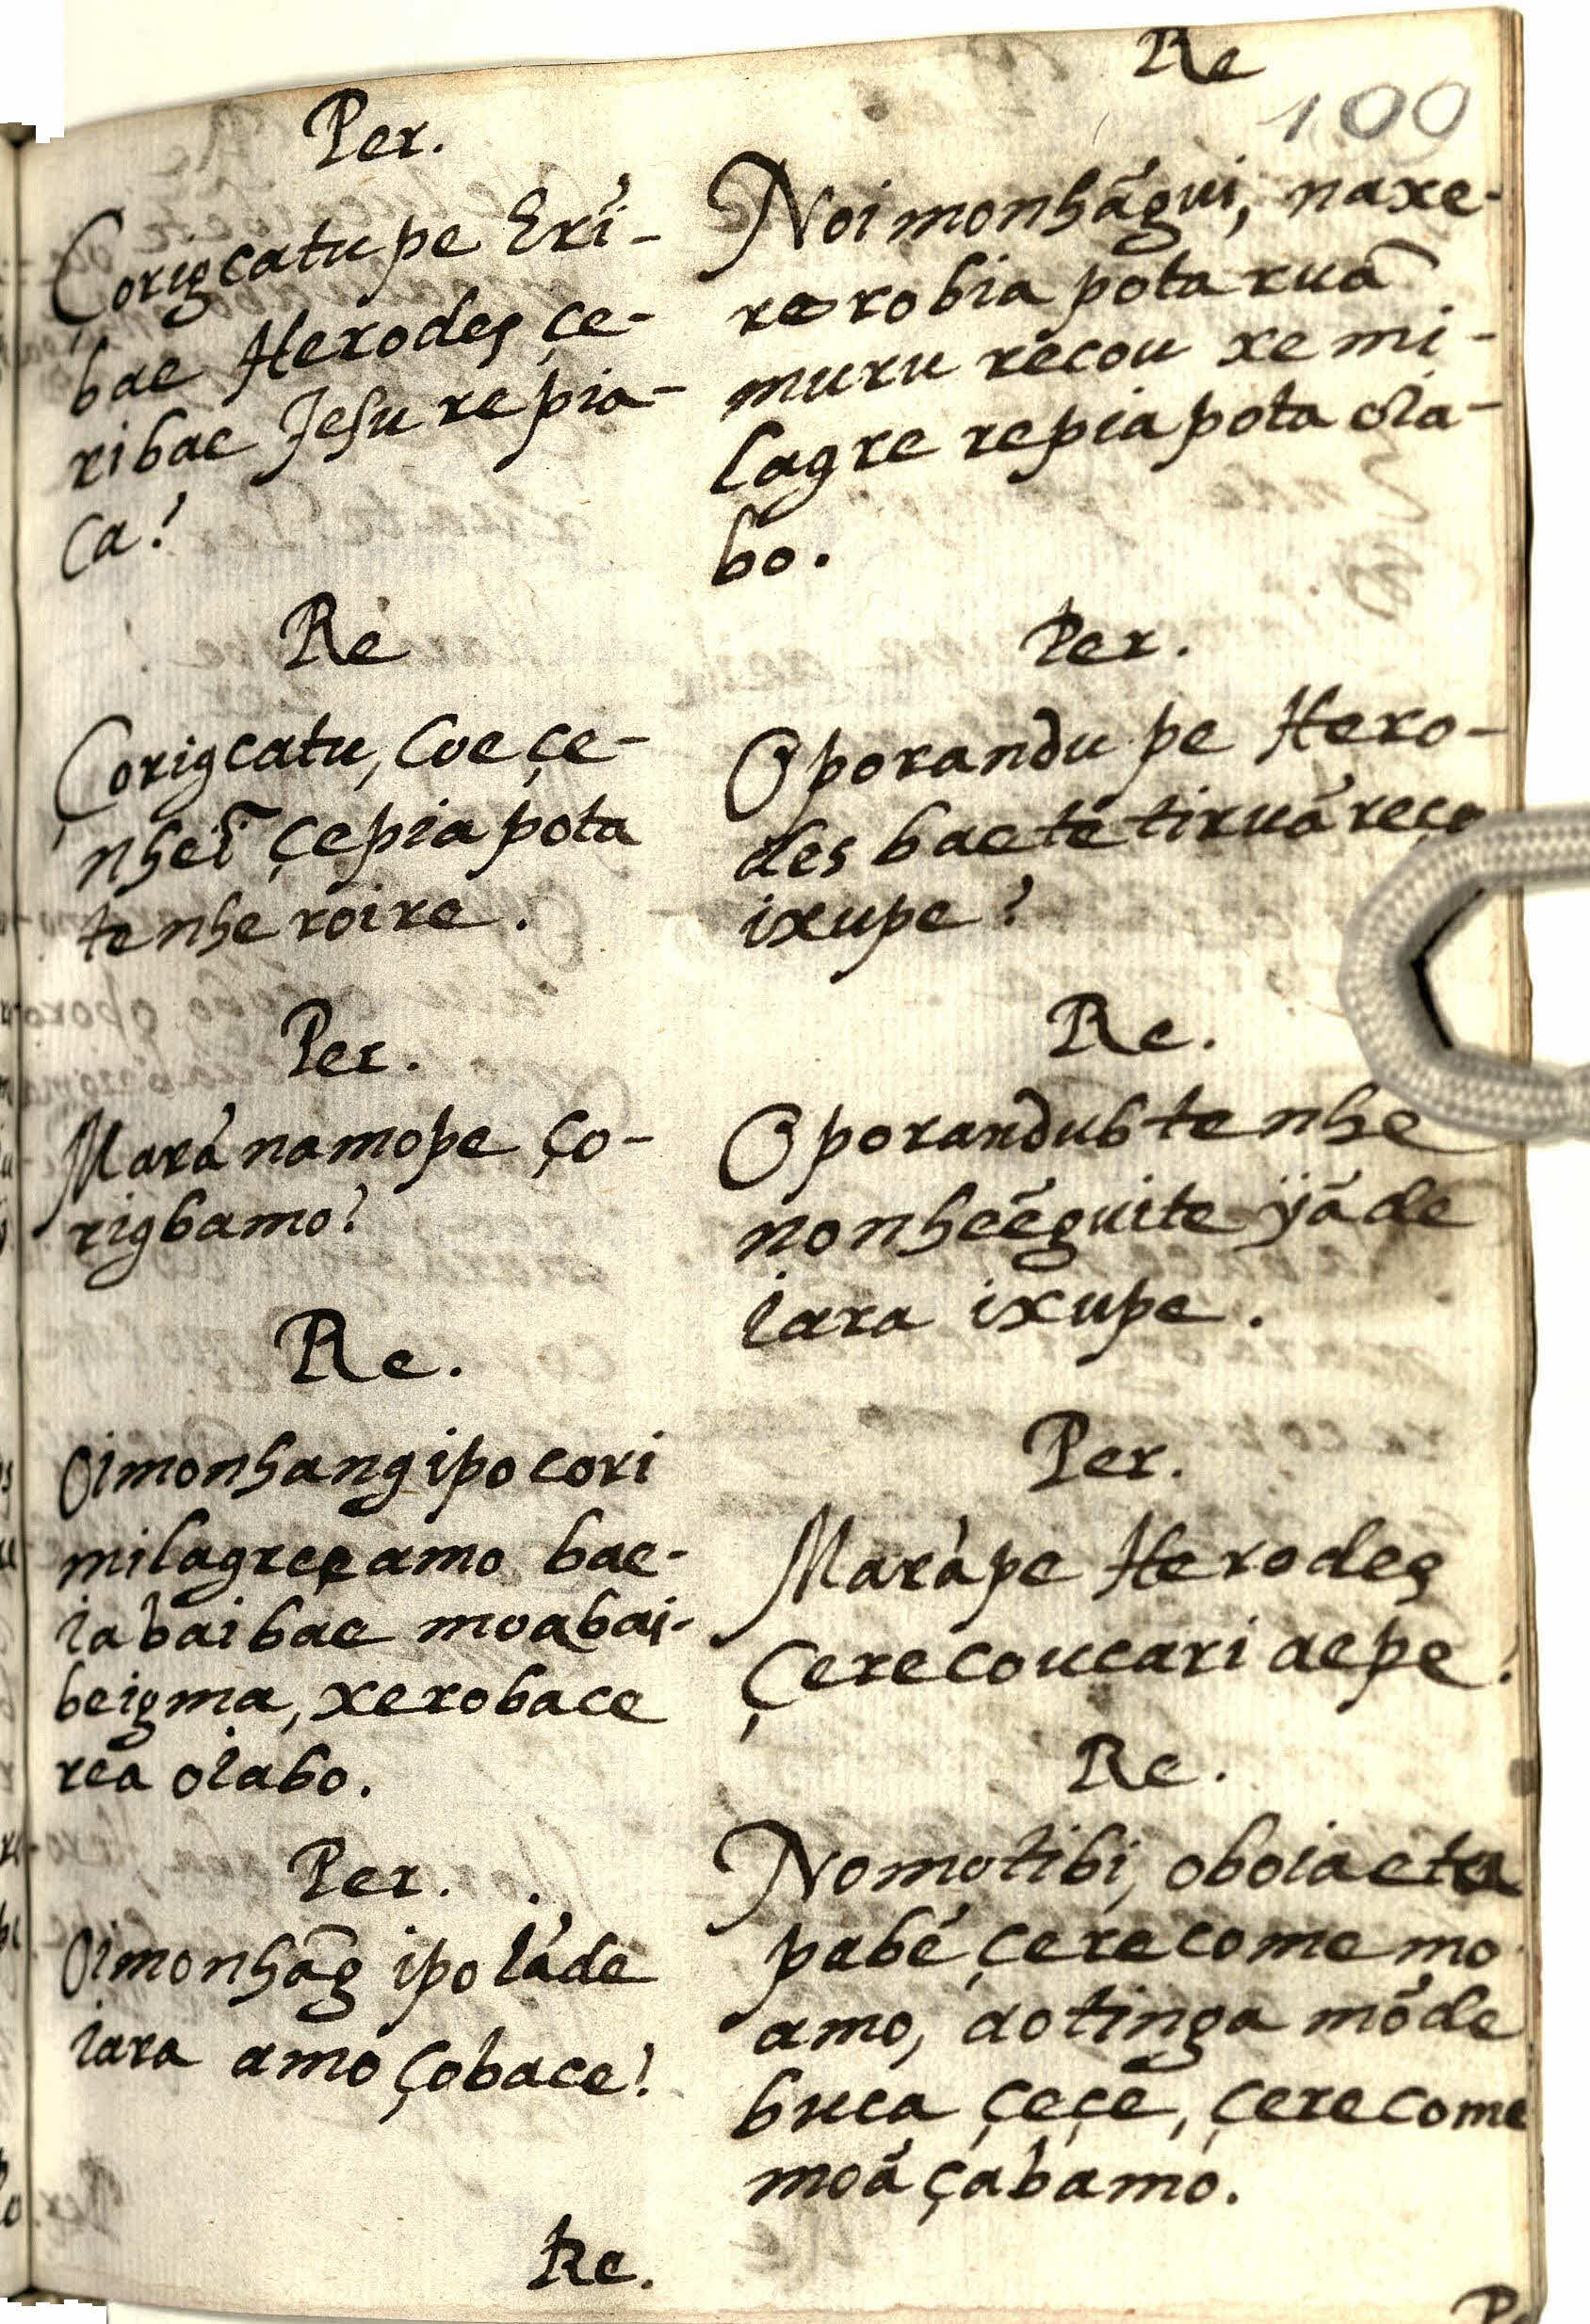 Per.
Çorigcatupe Erí-
bae Herodes çe-
ribae Jesu repia-
ca?
Re
Çorigcatu, Coeçe-
nheĩ çepiapota
tenheroire.
Per.
Maránamope ço-
rigbamo?
Re.
Oimonhangipocori
milagreçamo bae-
iabaibae moabai-
beigma, xerobace
reá oiabo.
Per.
Oimonhãg ipo iáde
iara amo çobace?
Re.
Re
100
Noimonhãgui, naxe-
rerobia potaruã
muru recou xemi-
lagre repiapota oia-
bo.
Per.
Oporandupe Hero-
des baetétiruã
ixupe?
Re.
Oporandubtenhe
nonheẽguite yáde
iara ixupe.
Per.
Marápe Herodes
çerecoucari aepe?
Re.
Nomotibi, oboiaeta
pabé çerecomemo
amo, aotinga móde
buca çeçé, çerecome
moáçabamo.